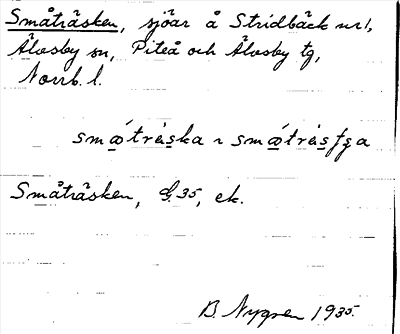 Småträsken, sjöar å Stridbäck nr 1,
Älvsby sn, Piteå och Älvsby tg,
Norrb. l.
småtrȧska ~ småtrȧsʃʂa
Småträsken, G. 35, ek.
B. Nygren 1935.